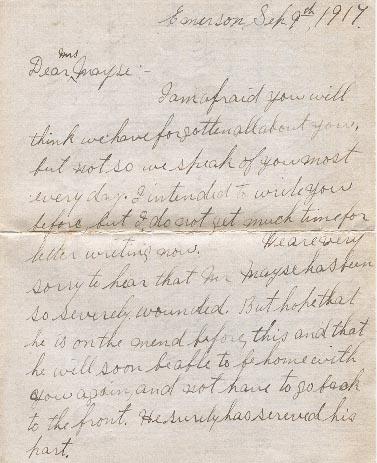 Emerson, Sep 9th, 1917.
Dear Mrs Mayse:-
I am afraid you will
think we have forgotten all about you,
but not so we speak of you most
every day. I intended to write you
before, but I do not get much time for
letter writing now. We are very
sorry to hear that Mr Mayse has been
so severely wounded. But hope that
he is on the mend before this and that
he will soon be able to be home with
you again, and not have to go back
to the front. He surely has serewed his
part.